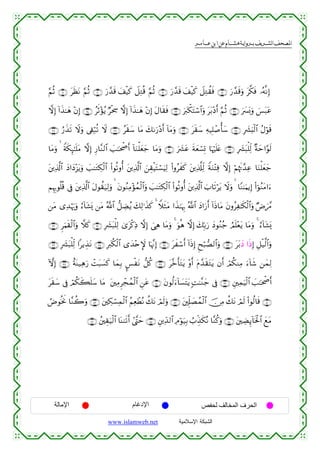 المصحف الشريف برواية هشام عن ابن عامر
إِنَّهُۥ فَكَّرَ وَقَدَّرَ ۝ فَقُتِلَ كَيْفَ قَدَّرَ ۝ ثُمَّ قُتِلَ كَيْفَ قَدَّرَ ۝ ثُمَّ نَظَرَ ۝ ثُمَّ
عَبَسَ وَبَسَرَ ۝ ثُمَّ أَدْبَرَ وَٱسْتَكْبَرَ ۝ فَقَالَ إِنْ هَٰذَآ إِلَّا سِحْرٌ يُؤْثَرُ ۝ إِنْ هَٰذَآ إِلَّا
قَوْلُ ٱلْبَشَرِ ۝ سَأُصْلِيهِ سَقَرَ ۝ وَمَآ أَدْرَىٰكَ مَا سَقَرُ ۝ لَا تُبْقِى وَلَا تَذَرُ ۝
لَوَّاحَةٌ لِّلْبَشَرِ ۝ عَلَيْهَا تِسْعَةَ عَشَرَ ۝ وَمَا جَعَلْنَآ أَصْحَٰبَ ٱلنَّارِ إِلَّا مَلَٰٓئِكَةً وَمَا
جَعَلْنَا عِدَّتَهُمْ إِلَّا فِتْنَةً لِّلَّذِينَ كَفَرُوا۟ لِيَسْتَيْقِنَ ٱلَّذِينَ أُوتُوا۟ ٱلْكِتَٰبَ وَيَزْدَادَ ٱلَّذِينَ
ءَامَنُوٓا۟ إِيمَٰنًا وَلَا يَرْتَابَ ٱلَّذِينَ أُوتُوا۟ ٱلْكِتَٰبَ وَٱلْمُؤْمِنُونَ وَلِيَقُولَ ٱلَّذِينَ فِى قُلُوبِهِم
مَّرَضٌ وَٱلْكَٰفِرُونَ مَاذَآ أَرَادَ ٱللَّهُ بِهَٰذَا مَثَلًا كَذَٰلِكَ يُضِلُّ ٱللَّهُ مَن يَشَآءُ وَيَهْدِى مَن
يَشَآءُ وَمَا يَعْلَمُ جُنُودَ رَبِّكَ إِلَّا هُوَ وَمَا هِىَ إِلَّا ذِكْرَىٰ لِلْبَشَرِ ۝ كَلَّا وَٱلْقَمَرِ ۝
وَٱلَّيْلِ إِذَا دَبَرَ ۝ وَٱلصُّبْحِ إِذَآ أَسْفَرَ ۝ إِنَّهَا لَإِحْدَى ٱلْكُبَرِ ۝ نَذِيرًا لِّلْبَشَرِ ۝
لِمَن شَآءَ مِنكُمْ أَن يَتَقَدَّمَ أَوْ يَتَأَخَّرَ ۝ كُلُّ نَفْسٍۭ بِمَا كَسَبَتْ رَهِينَةٌ ۝ إِلَّآ
أَصْحَٰبَ ٱلْيَمِينِ ۝ فِى جَنَّٰتٍ يَتَسَآءَلُونَ ۝ عَنِ ٱلْمُجْرِمِينَ ۝ مَا سَلَكَكُمْ فِى سَقَرَ
۝ قَالُوا۟ لَمْ نَكُ مِنَ ٱلْمُصَلِّينَ ۝ وَلَمْ نَكُ نُطْعِمُ ٱلْمِسْكِينَ ۝ وَكُنَّا نَخُوضُ
مَعَ ٱلْخَآئِضِينَ ۝ وَكُنَّا نُكَذِّبُ بِيَوْمِ ٱلدِّينِ ۝ حَتَّىٰٓ أَتَىٰنَا ٱلْيَقِينُ ۝
الحرف المخالف لحفص الإدغام الإمالة
الشبكة الإسلامية www.islamweb.net